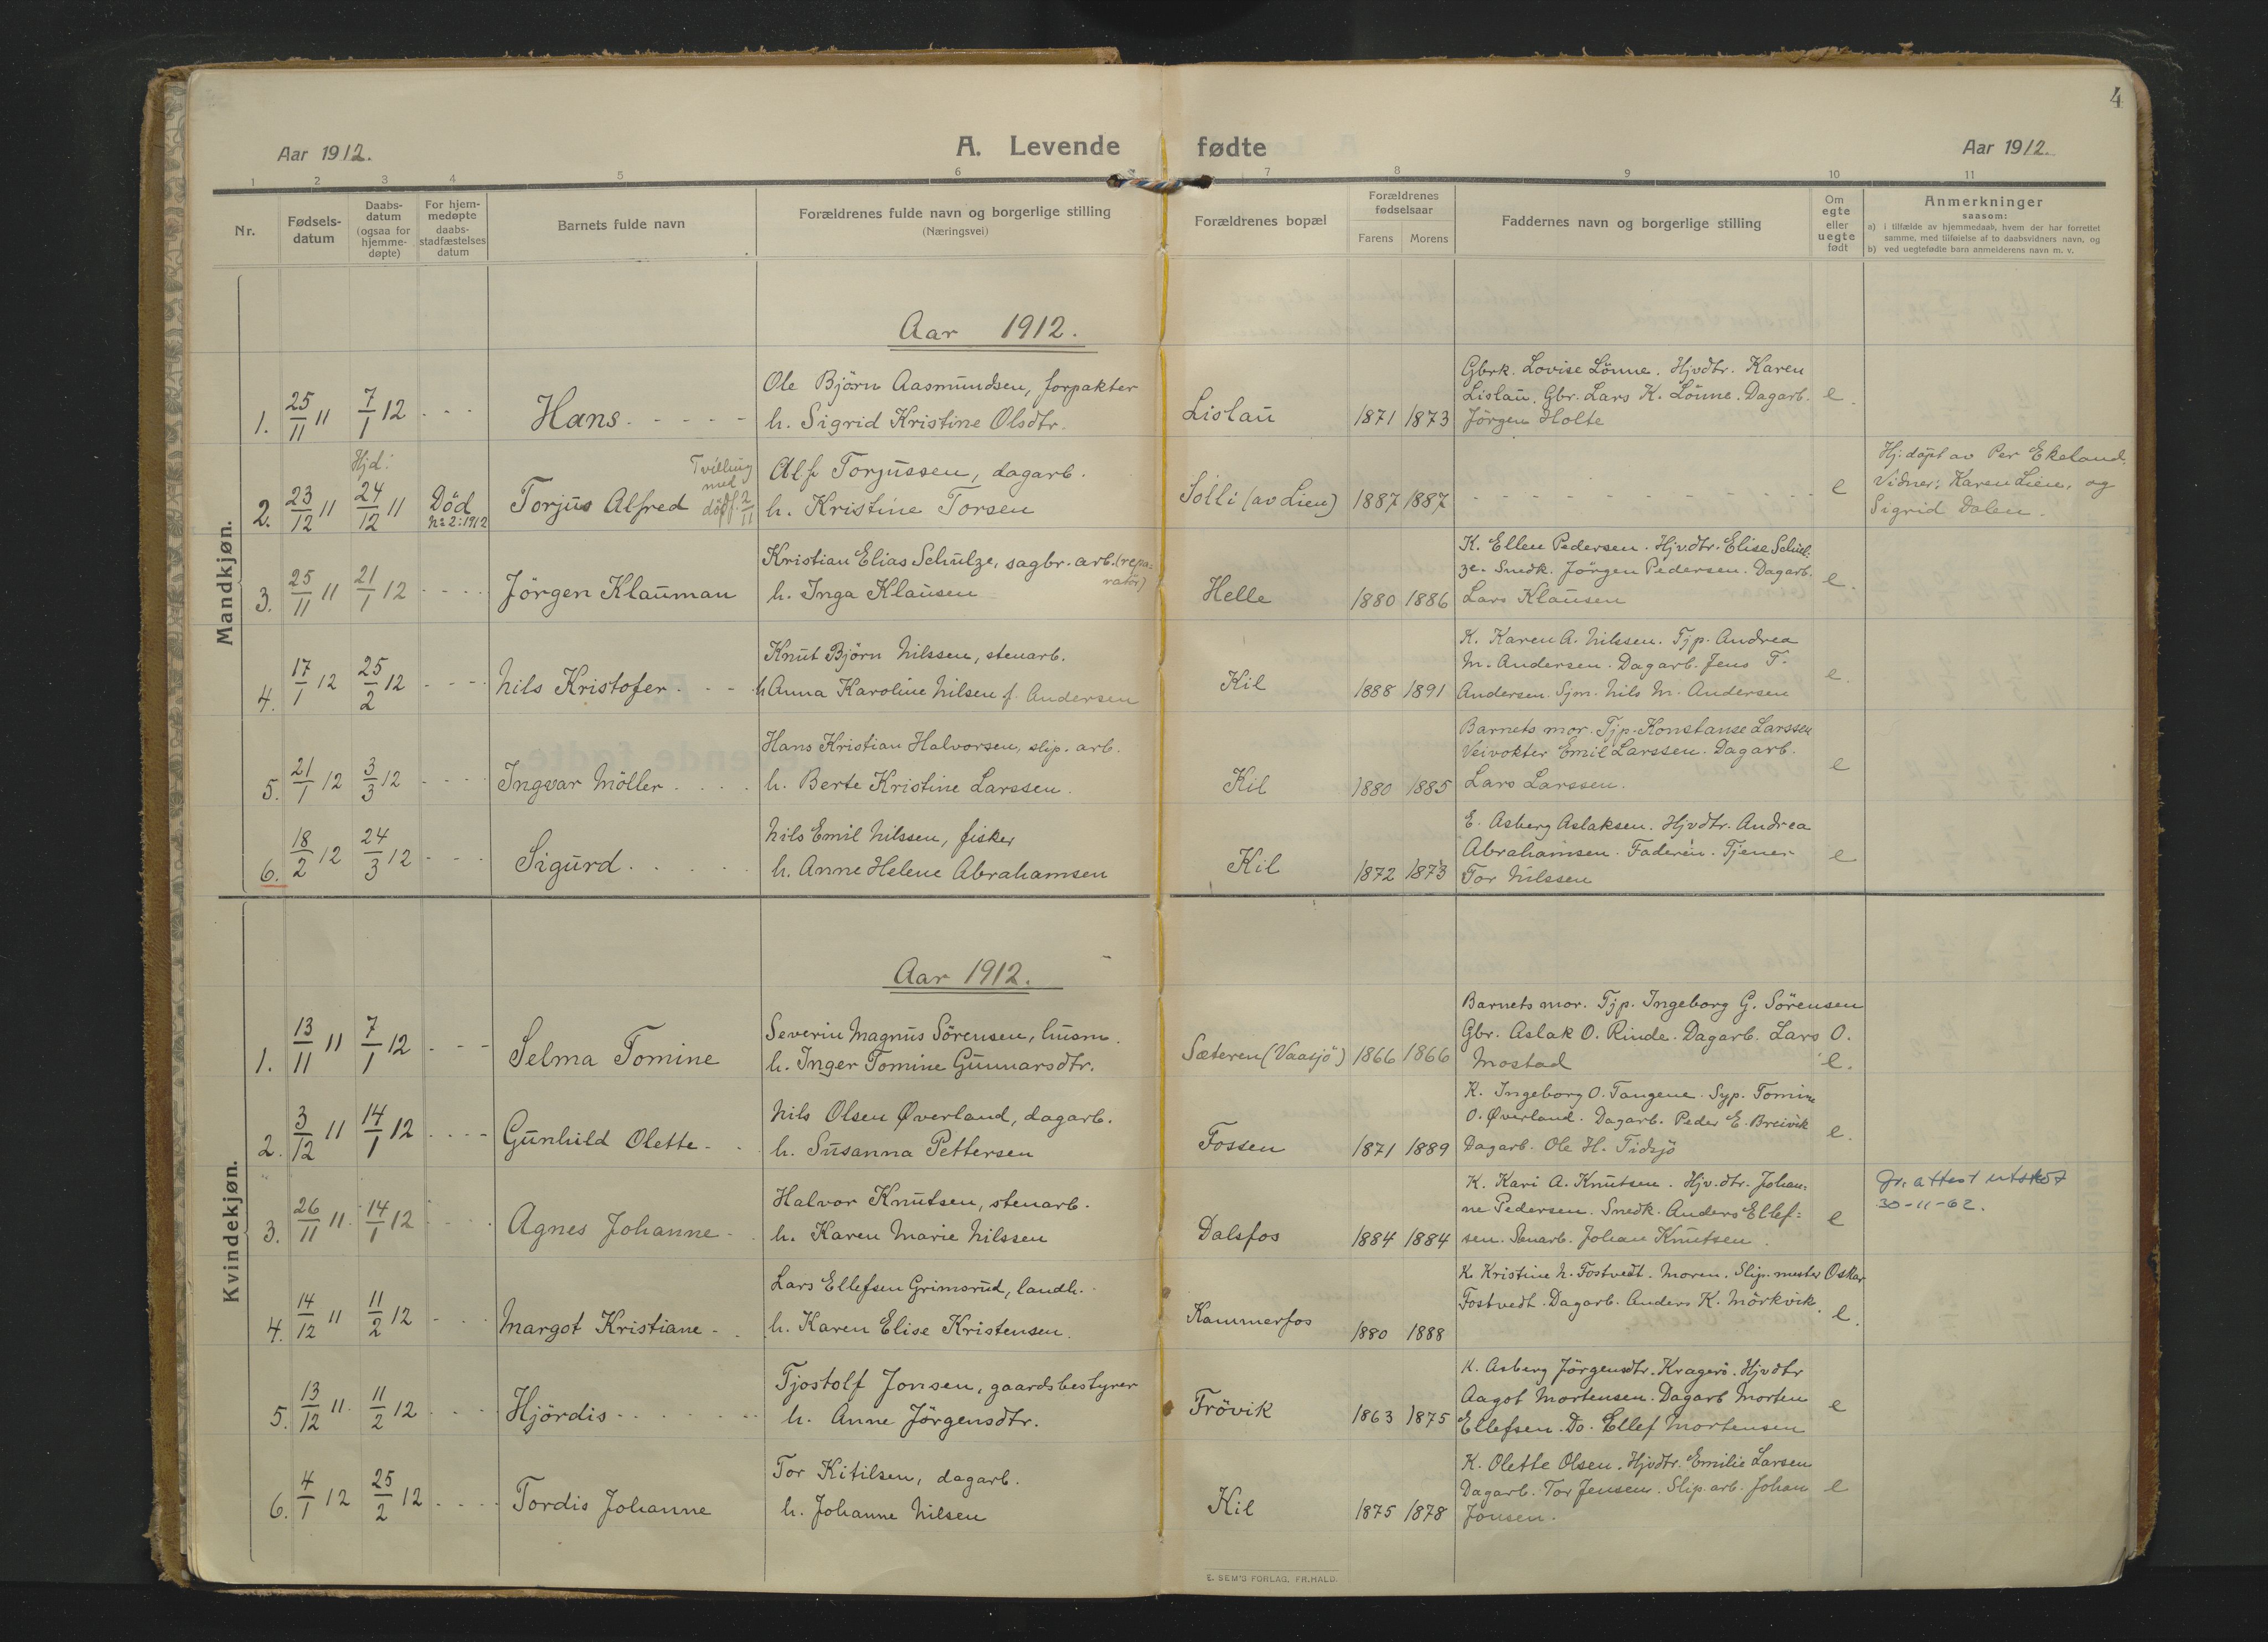 4
Aar 1912.
A. Levende fødte
Aar 1912.
1 2 3 4 5 6 7 8 9 10 11
Nr.
Fødsels-
datum
Daabs-
datum
(ogsaa for
hjemme-
døpte)
For hjem-
medøpte
daabs-
stadfæstelses
datum
Barnets fulde navn
Forældrenes fulde navn og borgerlige stilling
(Næringsvei)
Forældrenes bopæl
Forældrenes
fødselsaar
Farens Morens
Faddernes navn og borgerlige stilling
Om
egte
eller
uegte
født
Anmerkninger
saasom:
a) i tilfælde av hjemmedaab, hvem der har forrettet
samme, med tilføielse af to daabsvidners navn, og
b) ved uegtefødte barn anmelderens navn m. v.
Mandkjøn.
Aar 1912.
1. 25/11 11 7/1 12 - - -
Hans - - - - -
Ole Björn Aasmundsen, forpakter
h. Sigrid Kristine Olsdtr.
Lislau
1871 1873
Gbrk. Lovise Lönne. Hjvdtr. Karen
Lislau. Gbr. Lars K. Lönne. Dagarb.
Jörgen Holte
e.
Hjd:
2. 23/12 11 24/12 11
Död
No 2: 1912
Torjus Alfred
Tvilling
med
dödf. 2/11
Alf Torjussen, dagarb.
h. Kristine Torsen
Solli (av Lien)
1887 1887
- - - - - - - - - -
e
Hj: döpt av Per Ekeland.
Vidner: Karen Lien, og
Sigrid Dalen.
3. 25/11 11 21/1 12 - - - -
Jörgen Klauman
Kristian Elias Schulze, sagbr. arb. (repa-
ratör)
h. Inga Klausen
Helle
1880 1886
K. Ellen Pedersen. Hjvdtr. Elise Schul:
ze. Snedk. Jörgen Pedersen. Dagarb.
Lars Klausen
e.
4. 17/1 12 25/2 12 - - - -
Nils Kristofer. - - -
Knut Björn Nilssen, stenarb.
h Anna Karoline Nilsen f. Andersen
Kil
1888 1891
K. Karen A. Nilssen. Tjp. Andrea
M. Andersen. Dagarb. Jens T.
Andersen. Sjm. Nils M. Andersen
e.
5. 21/1 12 3/3 12 - - - -
Ingvar Möller . . . .
Hans Kristian Halvorsen, slip. arb.
h. Berte Kristine Larssen.
Kil
1880 1885
Barnets mor. Tjp. Konstanse Larssen
Veivokter Emil Larssen. Dagarb.
Lars Larssen.
e
6. 18/2 12 24/3 12 - - -
Sigurd. . . . .
Nils Emil Nilssen, fisker
h. Anne Helene Abrahamsen
Kil
1872 1873
E. Asberg Aslaksen. Hjvdtr. Andrea
Abrahamsen. Faderen. Tjener
Tor Nilssen
e
Kvindekjøn.
Aar 1912.
1. 13/11 11 7/1 12 - - -
Selma Tomine
Severin Magnus Sörensen, husm.
h. Inger Tomine Gunnarsdtr.
Sæteren (Vaasjö)
1866 1866
Barnets mor. Tjp. Ingeborg G. Sörensen
Gbr. Aslak O. Rinde. Dagarb. Lars O.
Mostad
e.
2. 3/12 11 14/1 12 - - - -
Gunhild Olette - .
Nils Olsen Øverland, dagarb.
h. Susanna Pettersen
Fossen
1871 1889
K. Ingeborg O. Tangene. Syp. Tomine
O. Øverland. Dagarb. Peder E. Breivik
Dagarb. Ole H. Tidsjö
e.
3. 26/11 11. 14/1 12 - - - .
Agnes Johanne - .
Halvor Knutsen, stenarb.
h. Karen Marie Nilssen
Dalsfos
1884 1884
K. Kari A. Knutsen. Hjv.dtr. Johan:
ne Pedersen. Snedk. Anders Ellef=
sen. Stenarb. Johan Knutsen.
e
attest utskr
30-11-62.
4. 14/12 11 11/2 12 - - -
Margot Kristiane - .
Lars Ellefsen Grimsrud, landh.
h. Karen Elise Kristensen.
Kammerfos
1880 1888
K. Kristine N. Fostvedt. Moren. Slip. mester Oskar
Fostvedt. Dagarb. Anders K. Mörkvik.
e.
5. 13/12 11. 11/2 12 . - - .
Hjördis - . . . . -
Tjostolf Jonsen, gaardsbestyrer
h. Anne Jörgensdtr.
Frövik
1863 1875
K. Asberg Jörgensdtr. Kragerö. Hjvdtr
Aagot Mortensen. Dagarb Morten
Ellefsen. Do. Ellef Mortensen
e
6. 4/1 12 25/2 12 - - - -
Tordis Johanne
Tor Kitilsen, dagarb.
h. Johanne Nilsen
Kil
1875 1878
K. Olette Olsen. Hjvdtr. Emilie Larsen
Dagarb. Tor Jensen. Slip. arb. Johan
Jonsen.
e
E. SEM'S FORLAG, FR.HALD.